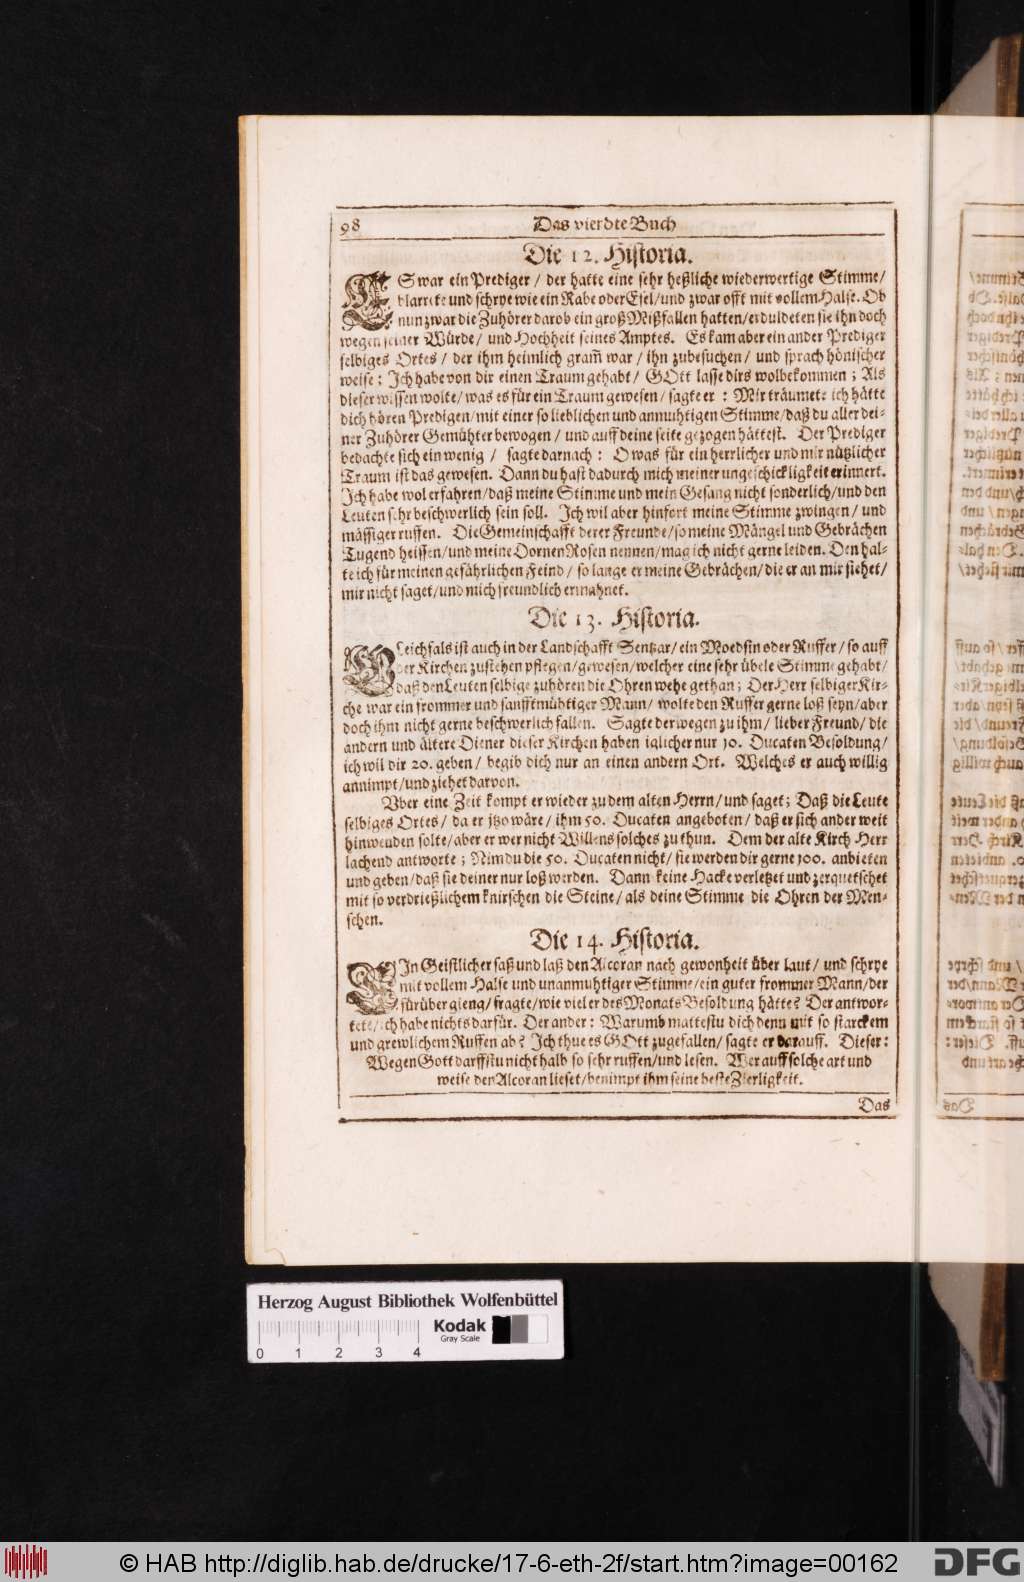 98 Das vierdte Buch
Die 12. Historia.
ES war ein Prediger / der hatte eine sehr heßliche wiederwertige Stimme /
blarrete und schrye wie ein Rabe oder Esel / und zwar offt mit vollem Halse. Ob
nun zwar die Zuhörer darob ein groß Mißfallen hatten / erduldeten sie ihn doch
wegen seiner Würde / und Hochheit seines Amptes. Es kam aber ein ander Prediger
selbiges Ortes / der ihm heimlich gram̃ war / ihn zubesuchen / und sprach hönischer
weise: Ich habe von dir einen Traum gehabt / GOtt lasse dirs wolbekommen; Als
dieser wissen wolte / was es für ein Traum gewesen / sagte er: Mir träumete ich hätte
dich hören Predigen / mit einer so lieblichen und anmuhtigen Stimme / daß du aller dei-
ner Zuhörer Gemühter bewogen / und auff deine seite gezogen hättest. Der Prediger
bedachte sich ein wenig / sagte darnach: O was für ein herrlicher und mir nützlicher
Traum ist das gewesen. Dann du hast dadurch mich meiner ungeschickligkeit erinnert.
Ich habe wol erfahren / daß meine Stimme und mein Gesang nicht sonderlich / und den
Leuten sehr beschwerlich sein soll. Ich wil aber hinfort meine Stimme zwingen / und
mässiger ruffen. Die Gemeinschafft derer Freunde / so meine Mängel und Gebrächen
Tugend heissen / und meine Dornen Rosen nennen / mag ich nicht gerne leiden. Den hal-
te ich für meinen gefährlichen Feind / so lange er meine Gebrächen / die er an mir siehet /
mir nicht saget / und mich freundlich ermahnet.
Die 13. Historia.
GLeichfals ist auch in der Landschafft Sentzar / ein Moedsin oder Ruffer / so auff
der Kirchen zustehen pflegen / gewesen / welcher eine sehr übele Stimme gehabt /
daß den Leuten selbige zuhören die Ohren wehe gethan; Der Herr selbiger Kir-
che war ein frommer und sanfftmühtiger Mann / wolte den Ruffer gerne loß seyn / aber
doch ihm nicht gerne beschwerlich fallen. Sagte derwegen zu ihm / lieber Freund / die
andern und ältere Diener dieser Kirchen haben iglicher nur 10. Ducaten Besoldung /
ich wil dir 20. geben / begib dich nur an einen andern Ort. Welches er auch willig
annimpt / und ziehet darvon.
Uber eine Zeit kompt er wieder zu dem alten Herrn / und saget; Daß die Leute
selbiges Ortes / da er jtzo wäre / ihm 50. Ducaten angeboten / daß er sich ander weit
hinwenden solte / aber er wer nicht Willens solches zu thun. Dem der alte Kirch Herr
lachend antworte; Nim du die 50. Ducaten nicht / sie werden dir gerne 100. anbieten
und geben / daß sie deiner nur loß werden. Dann keine Hacke verletzet und zerquetschet
mit so verdrießlichem knirschen die Steine / als deine Stimme die Ohren der Men-
schen.
Die 14. Historia.
EIn Geistlicher saß und laß den Alcoran nach gewonheit über laut / und schrye
mit vollem Halse und unanmuhtiger Stimme / ein guter frommer Mann / der
fürüber gieng / fragte / wie viel er des Monats Besoldung hätte? Der antwor-
tete / ich habe nichts darfür. Der ander: Warumb mattestu dich denn mit so starckem
und grewlichem Ruffen ab? Ich thue es GOtt zugefallen / sagte er darauff. Dieser:
Wegen Gott darffstu nicht halb so sehr ruffen / und lesen. Wer auff solche art und
weise den Alcoran lieset / benimpt ihm seine beste Zierligkeit.
Das
Herzog August Bibliothek Wolfenbüttel
Kodak
Gray Scale
0 1 2 3 4
© HAB http://diglib.hab.de/drucke/17-6-eth-2f/start.htm?image=00162
DFG